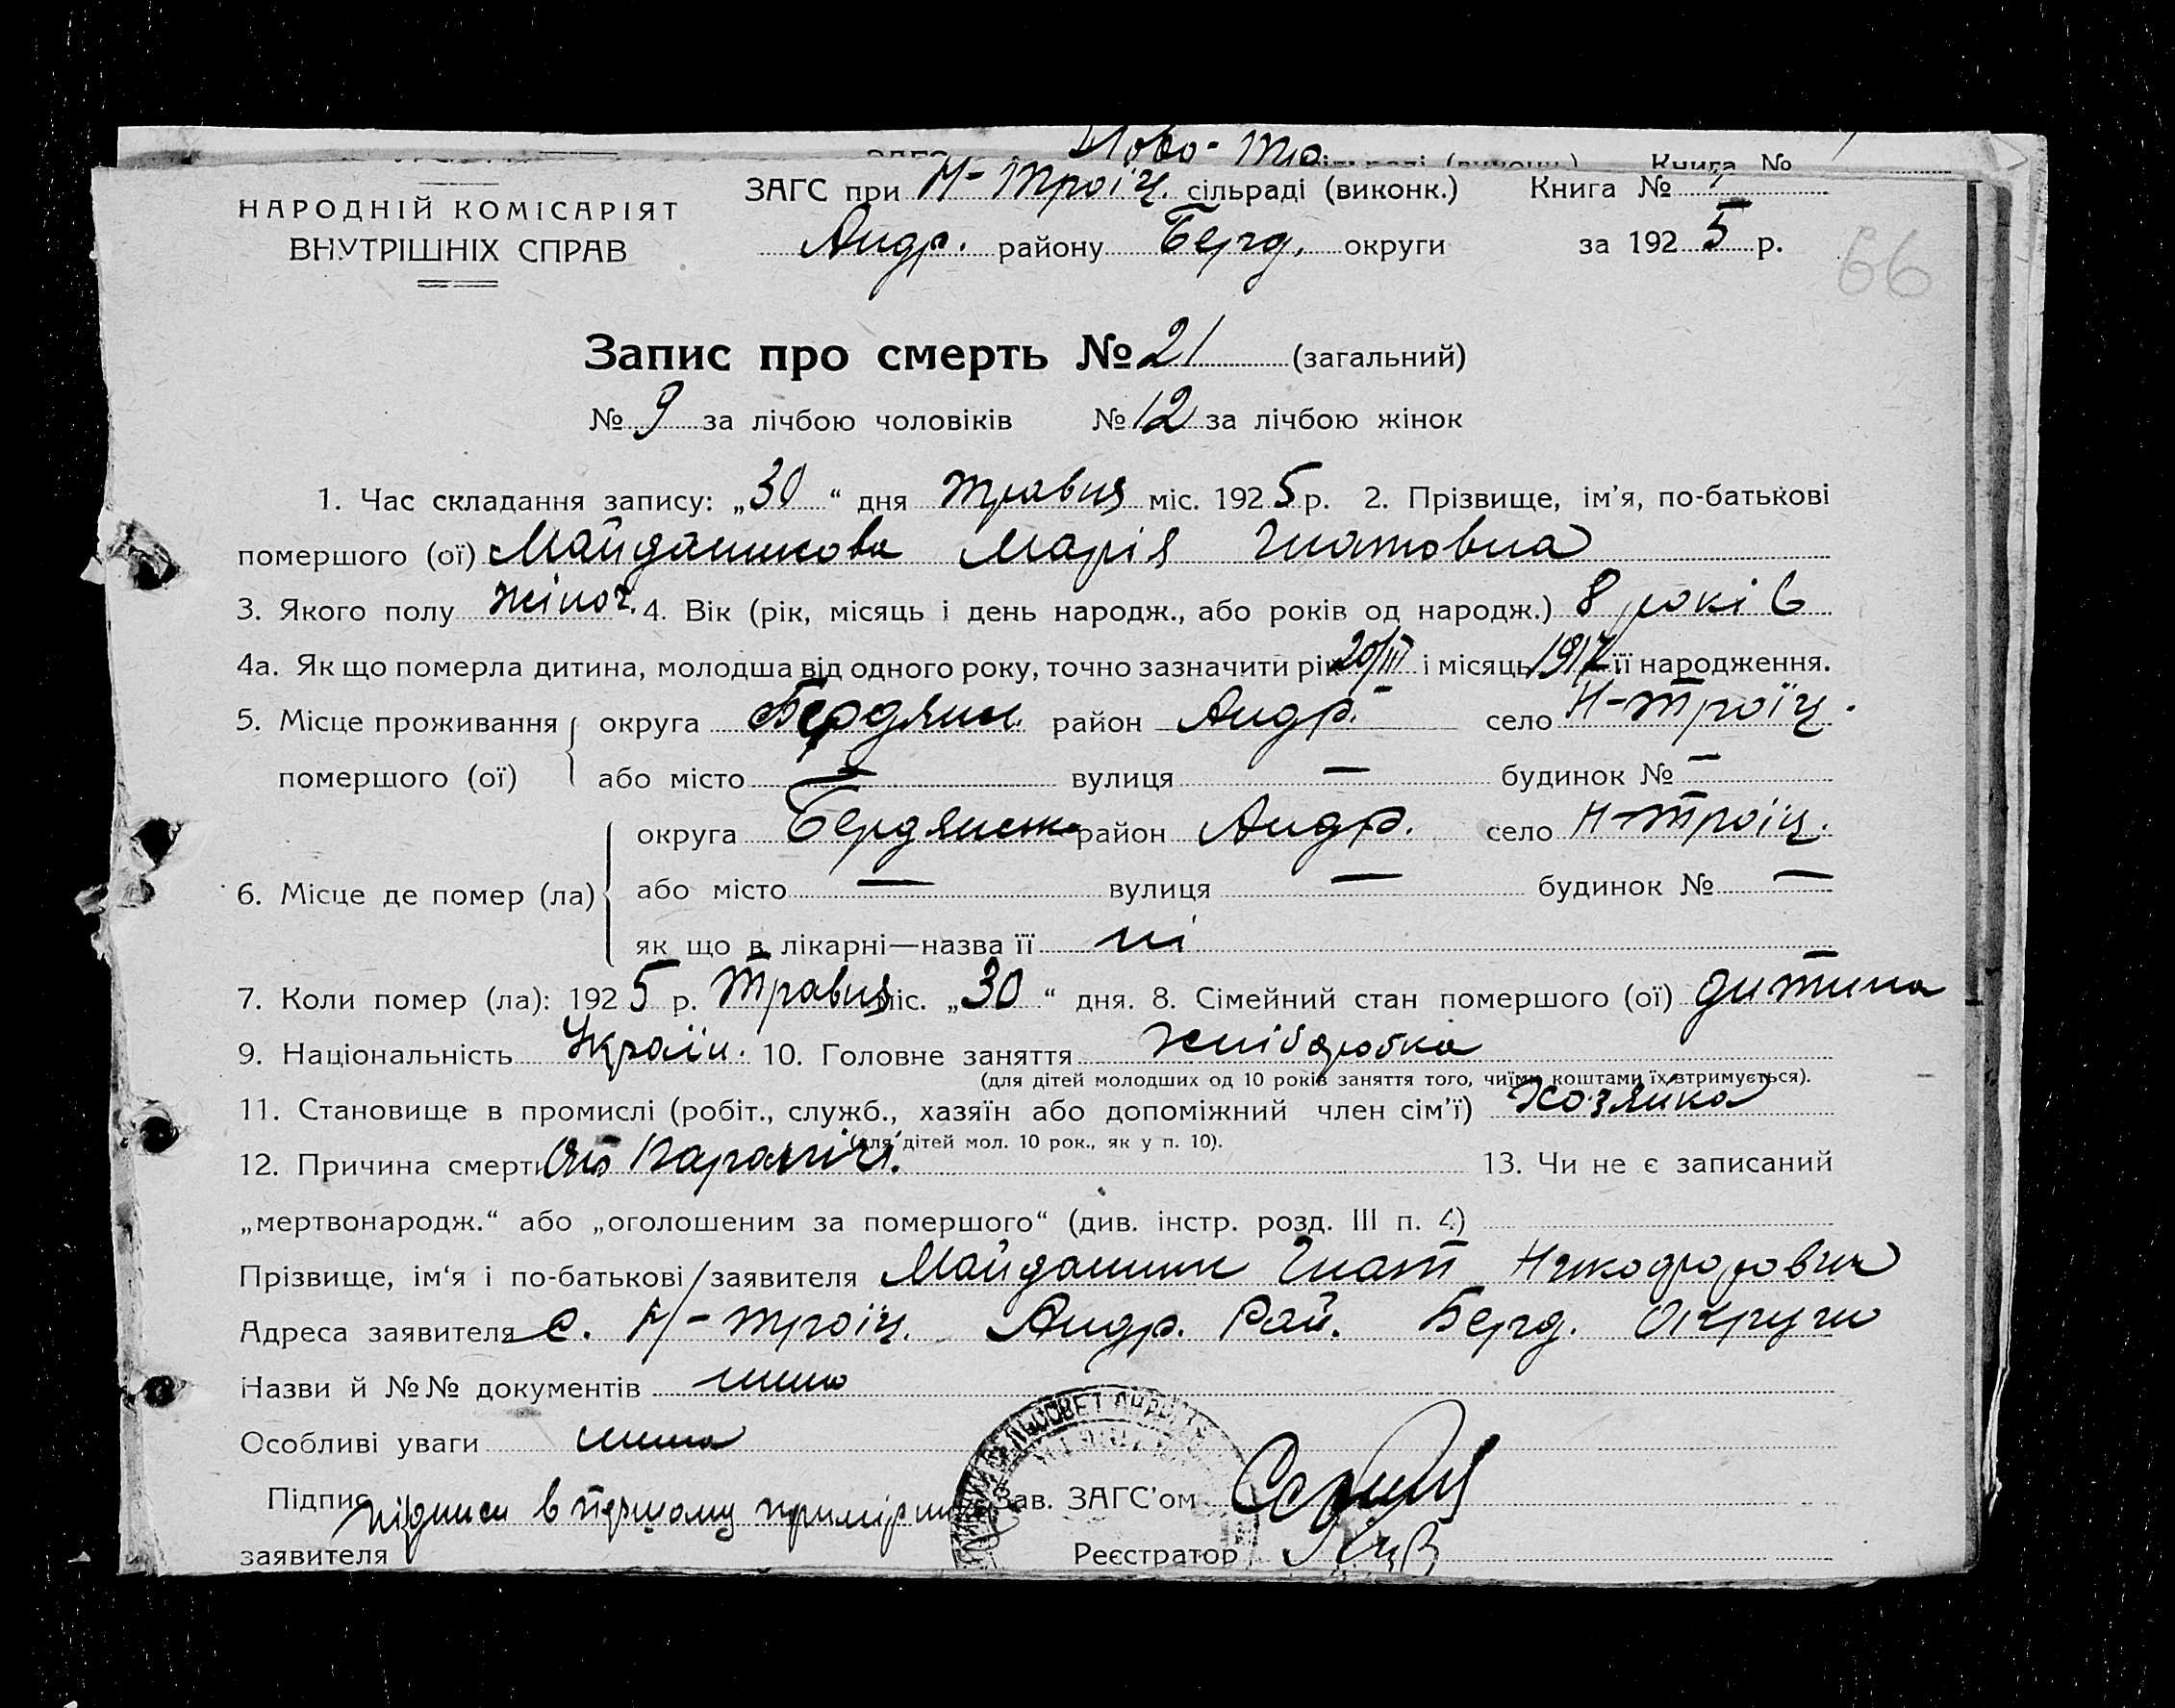 Ново-Тро
НАРОДНІЙ КОМІСАРІЯТ
ВНУТРІШНІХ СПРАВ
ЗАГС при Н-Троїц. сільраді (виконк.) Книга №
Андр. району Берд. округи за 1925 р.
66
Запис про смерть № 21 (загальний)
№ 9 за лічбою чоловіків № 12 за лічбою жінок
1. Час складання запису: „30“ дня травня міс. 1925 р. 2. Прізвище, ім’я, по-батькові
помершого (ої) Майданикова Марія Гнатовна
3. Якого полу жіноч. 4. Вік (рік, місяць і день народж., або років од народж.) 8 років
4а. Як що померла дитина, молодша від одного року, точно зазначити рік 20/III і місяць 1917 її народження.
5. Місце проживання округа Бердянск. район Андр. село Н-Троїц.
помершого (ої) або місто — вулиця — будинок № —
округа Бердянськ район Андр. село Н-Троїц.
6. Місце де помер (ла)
або місто — вулиця — будинок № —
як що в лікарні—назва її ні
7. Коли помер (ла): 1925 р. Травня міс. „30“ дня. 8. Сімейний стан помершого (ої) дитина
9. Національність Україн. 10. Головне заняття хліборобка
(для дітей молодших од 10 років заняття того, чиїми коштами їх втримується).
11. Становище в промислі (робіт., служб., хазяїн або допоміжний член сім’ї) Хозяйка
(для дітей мол. 10 рок., як у п. 10).
12. Причина смерти От 13. Чи не є записаний
„мертвонародж.“ або „оголошеним за помершого“ (див. інстр. розд. III п. 4)
Прізвище, ім‘я і по-батькові заявителя Майданик Гнат Никодрофович
Адреса заявителя с. Н-Троїц. Андр. Рай. Берд. Округи
Назви й №№ документів нима
Особливі уваги нима
Підпис підписи в першому примірник Зав. ЗАГС’ом
заявителя Реєстратор